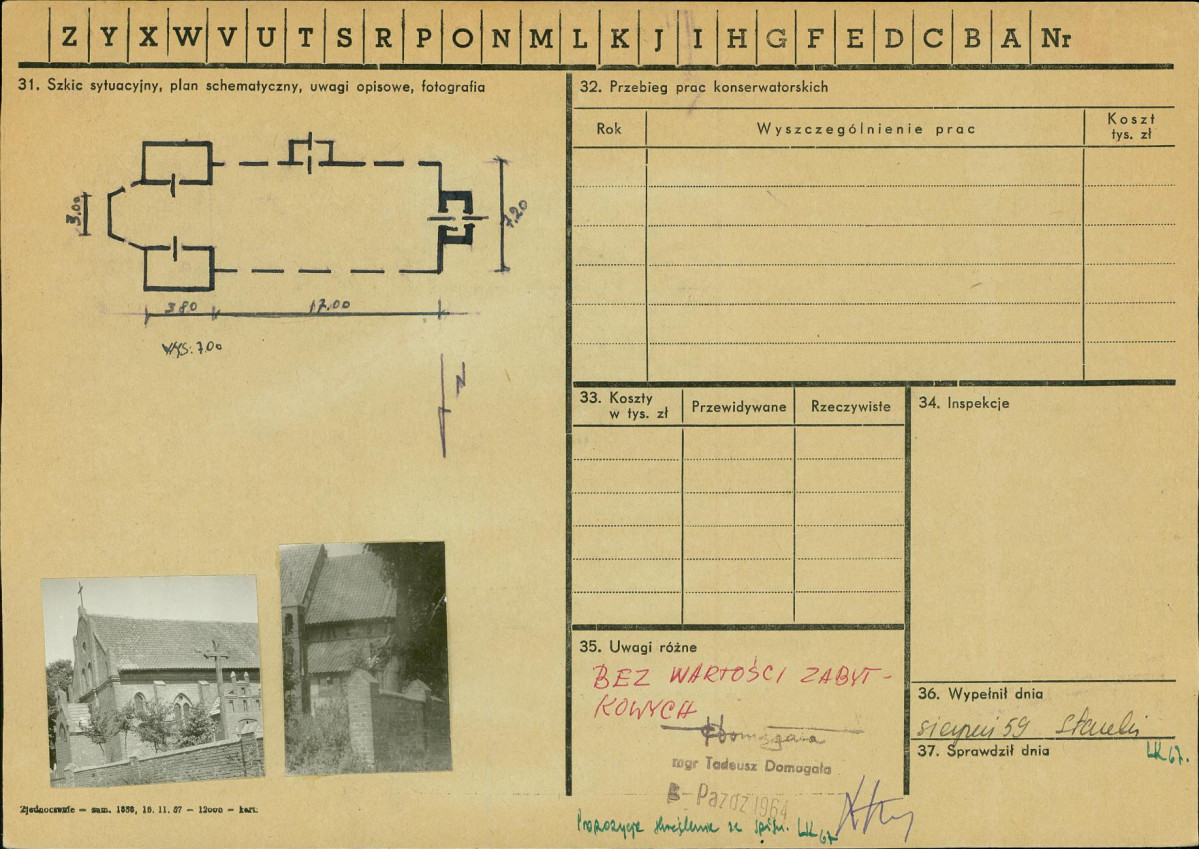 Z Y X W V U T S R P O N M L K J I H G F E D C B A Nr
31. Szkic sytuacyjny, plan schematyczny, uwagi opisowe, fotografia
3.00
7.20
3.80
17.00
WYS: 7.00
N
32. Przebieg prac konserwatorskich
Rok
Wyszczególnienie prac
Koszt
tys. zł
33. Koszty
w tys. zł
Przewidywane
Rzeczywiste
34. Inspekcje
35. Uwagi różne
BEZ WARTOŚCI ZABYT-
KOWYCH
mgr Tadeusz Domagała
Paźdz 1964
Propozycja skreślenia ze spisu. LK 67
36. Wypełnił dnia
sierpień 59
37. Sprawdził dnia
LK 67.
Zjednoczenie — zam. 1838, 16. 11. 57 — 12000 — kart.